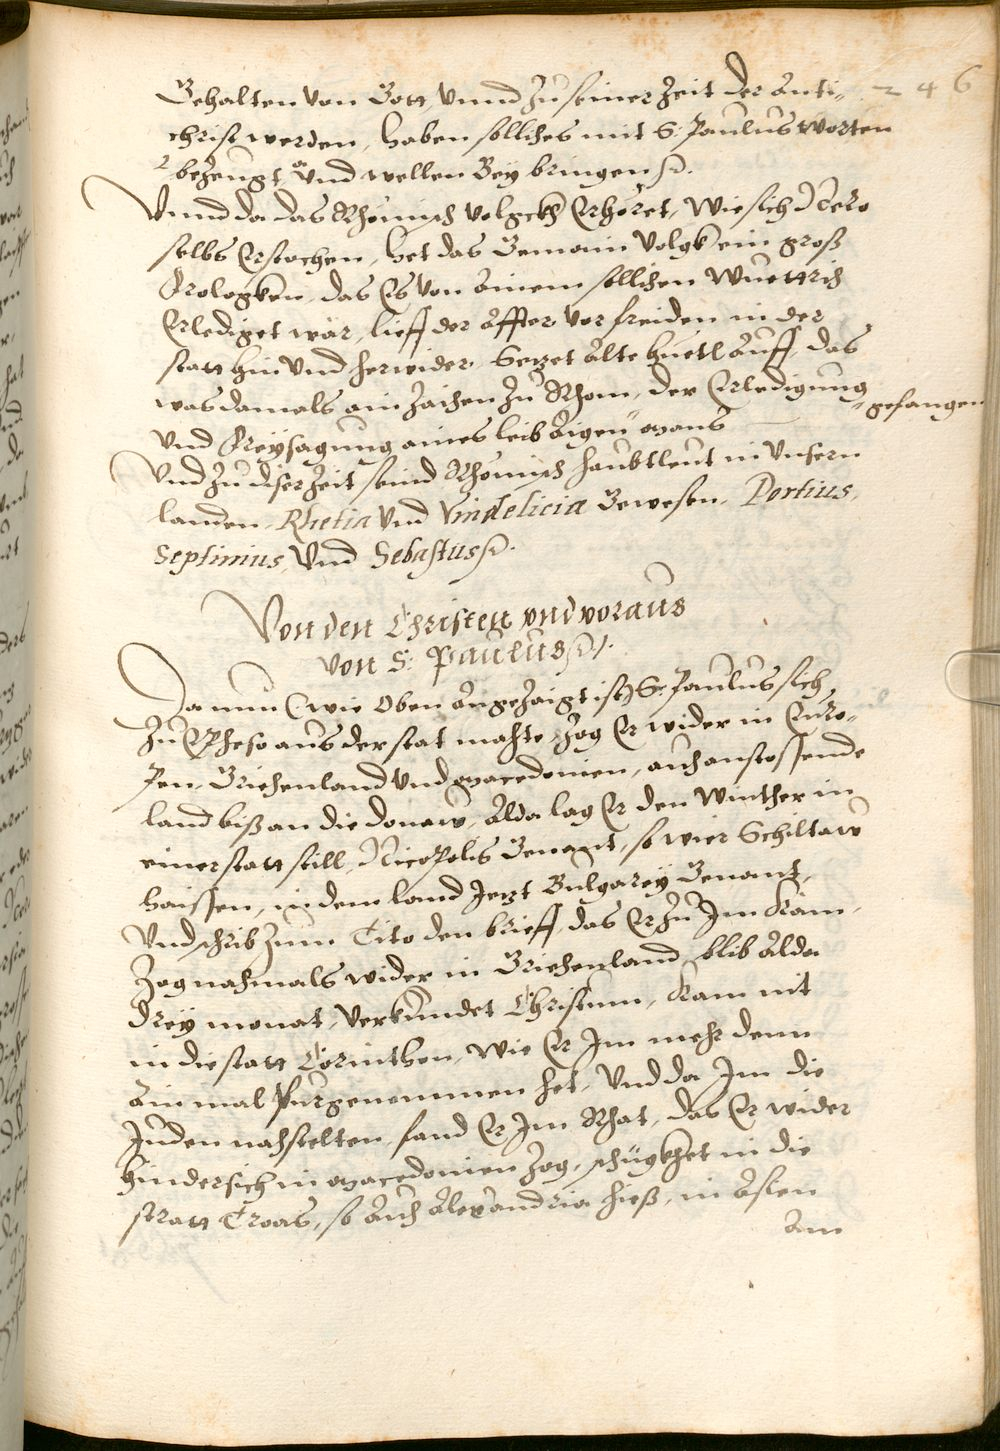 246
Behalten von Gott, Vnnd Zu seiner Zeit der Anti-
christ werden, haben sölliches mit S: Paulus worten
bezeugt, Vnd wellen Bey bringen
Vnnd da das Rhömisch Volgckh Erhöret, Wie sich Nero
selbs Erstochen, Het das Gemain Volgk ein groß
Frologken, das Es Von Ainem sollichen Wüettrich
Erlediget wär, lieff der Affter Vor freiden in der
statt hin Vnd herwider, Setzet Alte hüetl Auff, das
was damals ain Zaichen Zu Rhom, der Erledigung
gefangen
Vnd Freysagung aines leib Aigen mans
Vnd Zu diser Zeit seind Rhömisch haubtleut in Vnsern
landen, Rhetia Vnd Vindelicia Gewesen, Portius,
Septimius, Vnd Sebastus
Von den Christen vnd voraus
von S: Paulus
Da nun (wie Oben Angezaigt ist) S: Paulus sich
Zu Epheso aus der stat machte, Zog Er wider in Euro-
pen, Griechenland Vnd Macedonien, auch anstossende
land biß an die Donaw, Alda lag Er den Winther in
einer statt still, Nicopolis Genant, so wier Schiltaw
haissen, in dem land Jetzt Bulgarey Genant,
Vnd schrib Zum Tito den brieff, das Er Zu Im kam,
Zog nachmals wider in Griechenland, blib Alda
Drey monat, Verkündet Christum, kam nit
in die statt Corinthen, Wie Er Im mehr denn
Ain mal fürgenommen het, Vnd da Im die
Juden nachstelten, fand Er Im Rhat, das Er wider
hindersich in Macedonien Zog, schügkhet in die
statt Troas, so Auch Alexandria hieß, in Asien
Am